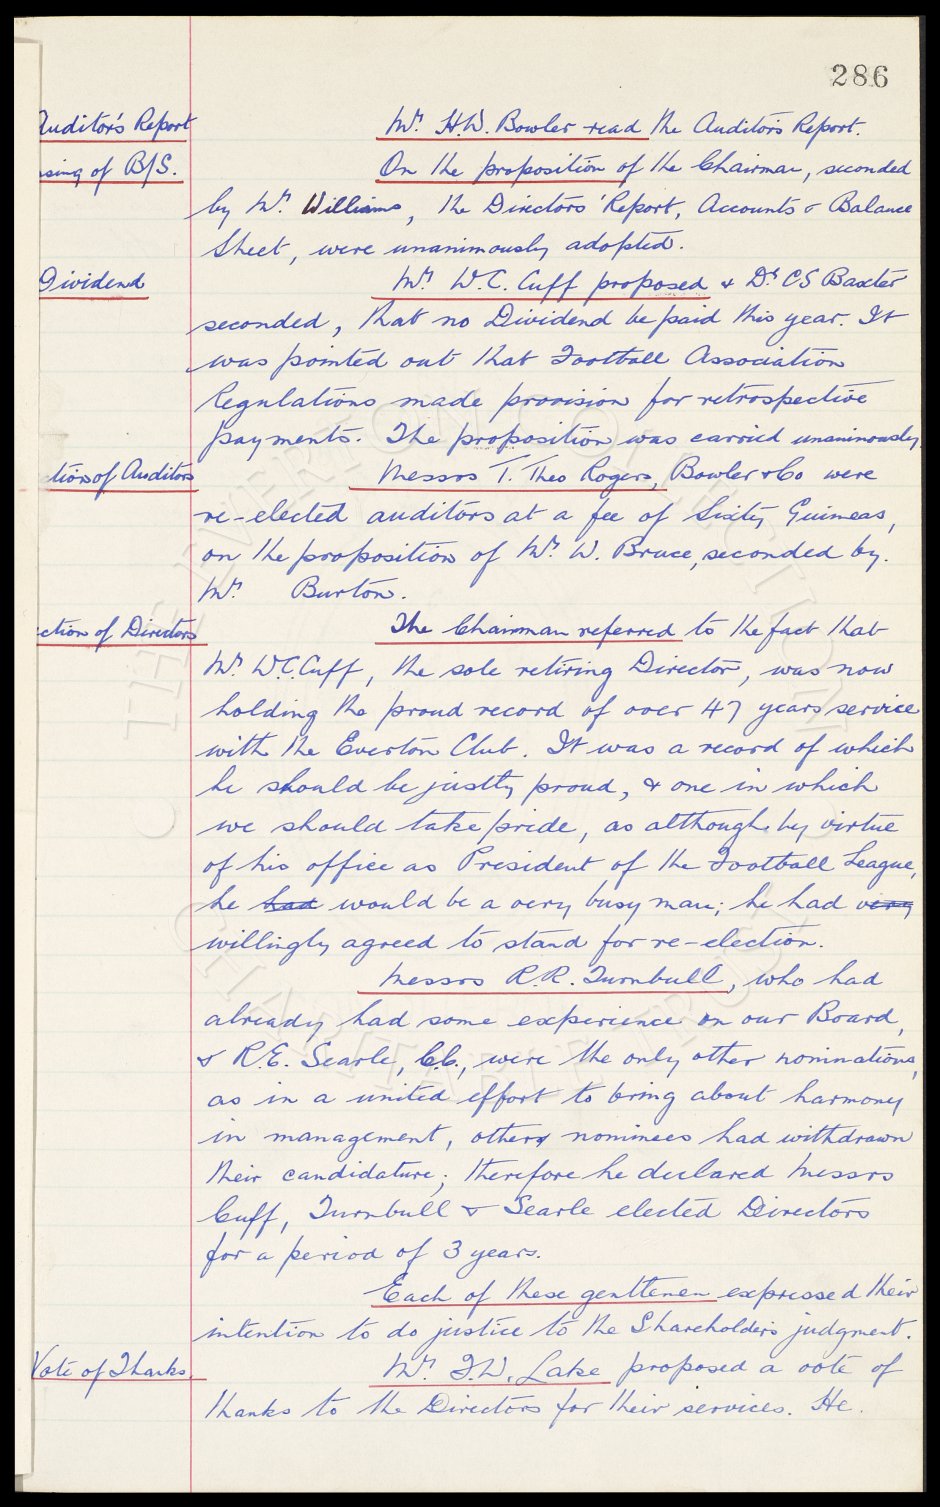 286
Auditor's Report
Mr. H.W. Bowler read the Auditors Report.
sing of B/S.
On the proposition of the Chairman, seconded
by Mr. Williams, the Directors' Report, Accounts & Balance
Sheet, were unanimously adopted.
Dividend
Mr. W.C. Cuff proposed & Dr. C S Baxter
seconded, that no Dividend be paid this year. It
was pointed out that Football Association
Regulations made provision for retrospective
payments. The proposition was carried unanimously.
ction of Auditors
Messrs T. Theo Rogers, Bowler & Co were
re-elected auditors at a fee of Sixty Guineas,
on the proposition of Mr. W. Bruce, seconded by.
Mr. Burton.
ction of Directors
The Chairman referred to the fact that
Mr. W.C. Cuff, the sole retiring Director, was now
holding the proud record of over 47 years service
with the Everton Club. It was a record of which
he should be justly proud, & one in which
we should take pride, as although, by virtue
of his office as President of the Football League,
he had would be a very busy man; he had very
willingly agreed to stand for re-election.
Messrs R.R. Turnbull, who had
already had some experience on our Board,
& R.E. Searle, C.C., were the only other nominations,
as in a united effort to bring about harmony
in management, others nominees had withdrawn
their candidature; therefore he declared Messrs
Cuff, Turnbull & Searle elected Directors
for a period of 3 years.
Each of these gentlemen expressed their
intention to do justice to the Shareholders judgment.
Vote of Thanks.
Mr. F.W. Lake proposed a vote of
thanks to the Directors for their services. He.
THE EVERTON COLLECTION
CHARITABLE TRUST